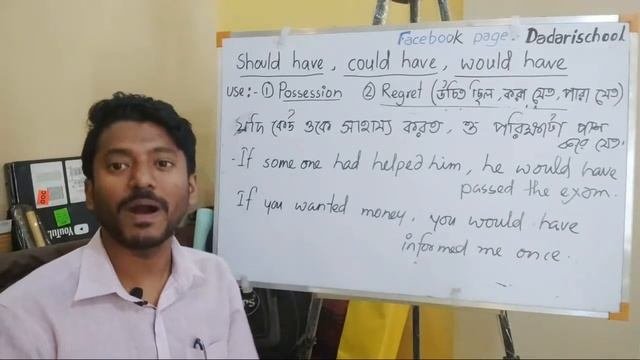 Facebook page:- Dadarischool
Should have, could have, would have
use:- ① Possession ② Regret (উচিত ছিল, করা যেত, পারা যেত)
যদি কেউ ওকে সাহায্য করত, ও পরিক্ষাটা পাশ
করে যেত.
- If some one had helped him, he would have
passed the exam.
If you wanted money, you would have
informed me once.
YouTu